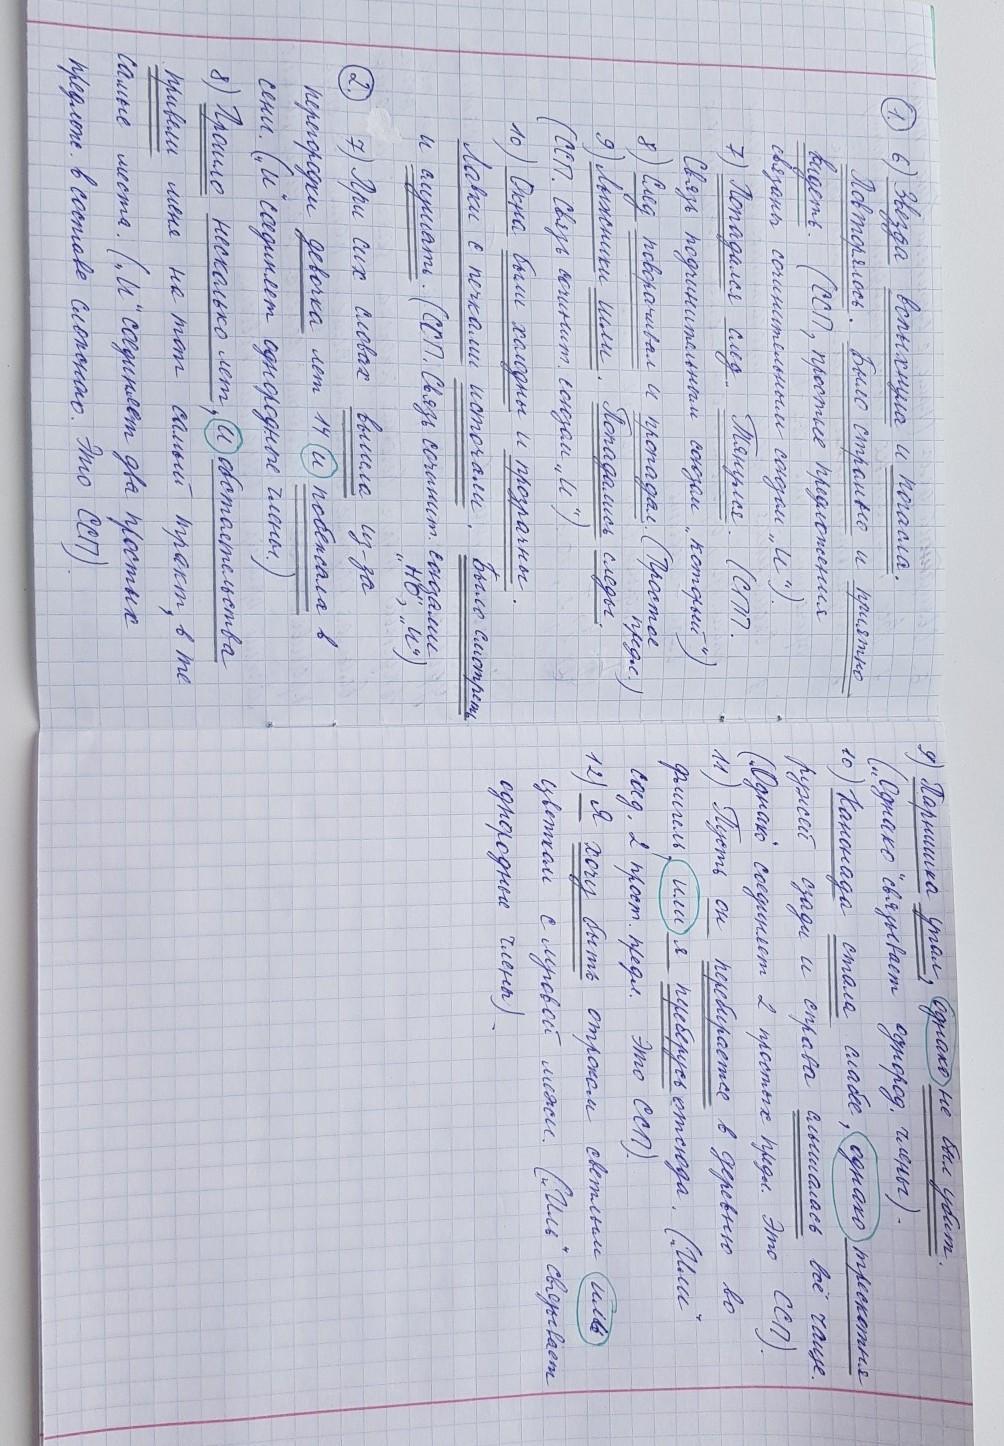 1. 6) Звезда вспыхнула и погасла.
Повторялось. Было странно и приятно
видеть. (ССП, простые предложения
связаны сочинительным союзом „и").
7) Попадался след. Тянулся. (СПП.
Связь подчинительным союзом „который")
8) След поворачивал и пропадал (Простое предл.)
9) Лыжники шли. Попадались следы.
(ССП. Связь сочинит. союзом „и")
10) Окна были холодны и прозрачны.
Лавки с печками источали. Было смотреть
и ощущать. (ССП. Связь сочинит. союзами „но", „и")
2. 7) При сих словах вышла из-за
перегородки девочка лет 14 и побежала в
сени. („И" соединяет однородные члены.)
8) Прошло несколько лет, и обстоятельства
привели меня на тот самый тракт, в те
самые места. („И" соединяет два простых
предлож. в составе сложного. Это ССП).
9) Парнишка упал, однако не был убит.
(„Однако" связывает однород. члены).
10) Канонада стала слабее, однако трескотня
ружей сзади и справа слышалась всё чаще.
(„Однако" соединяет 2 простых предл. Это ССП).
11) Пусть он перебирается в деревню во
флигель, или я переберусь отсюда. („Или"
соед. 2 прост. предл. Это ССП).
12) Я хочу быть отроком светлым иль
цветком с луговой межи. („Иль" связывает
однородные члены).